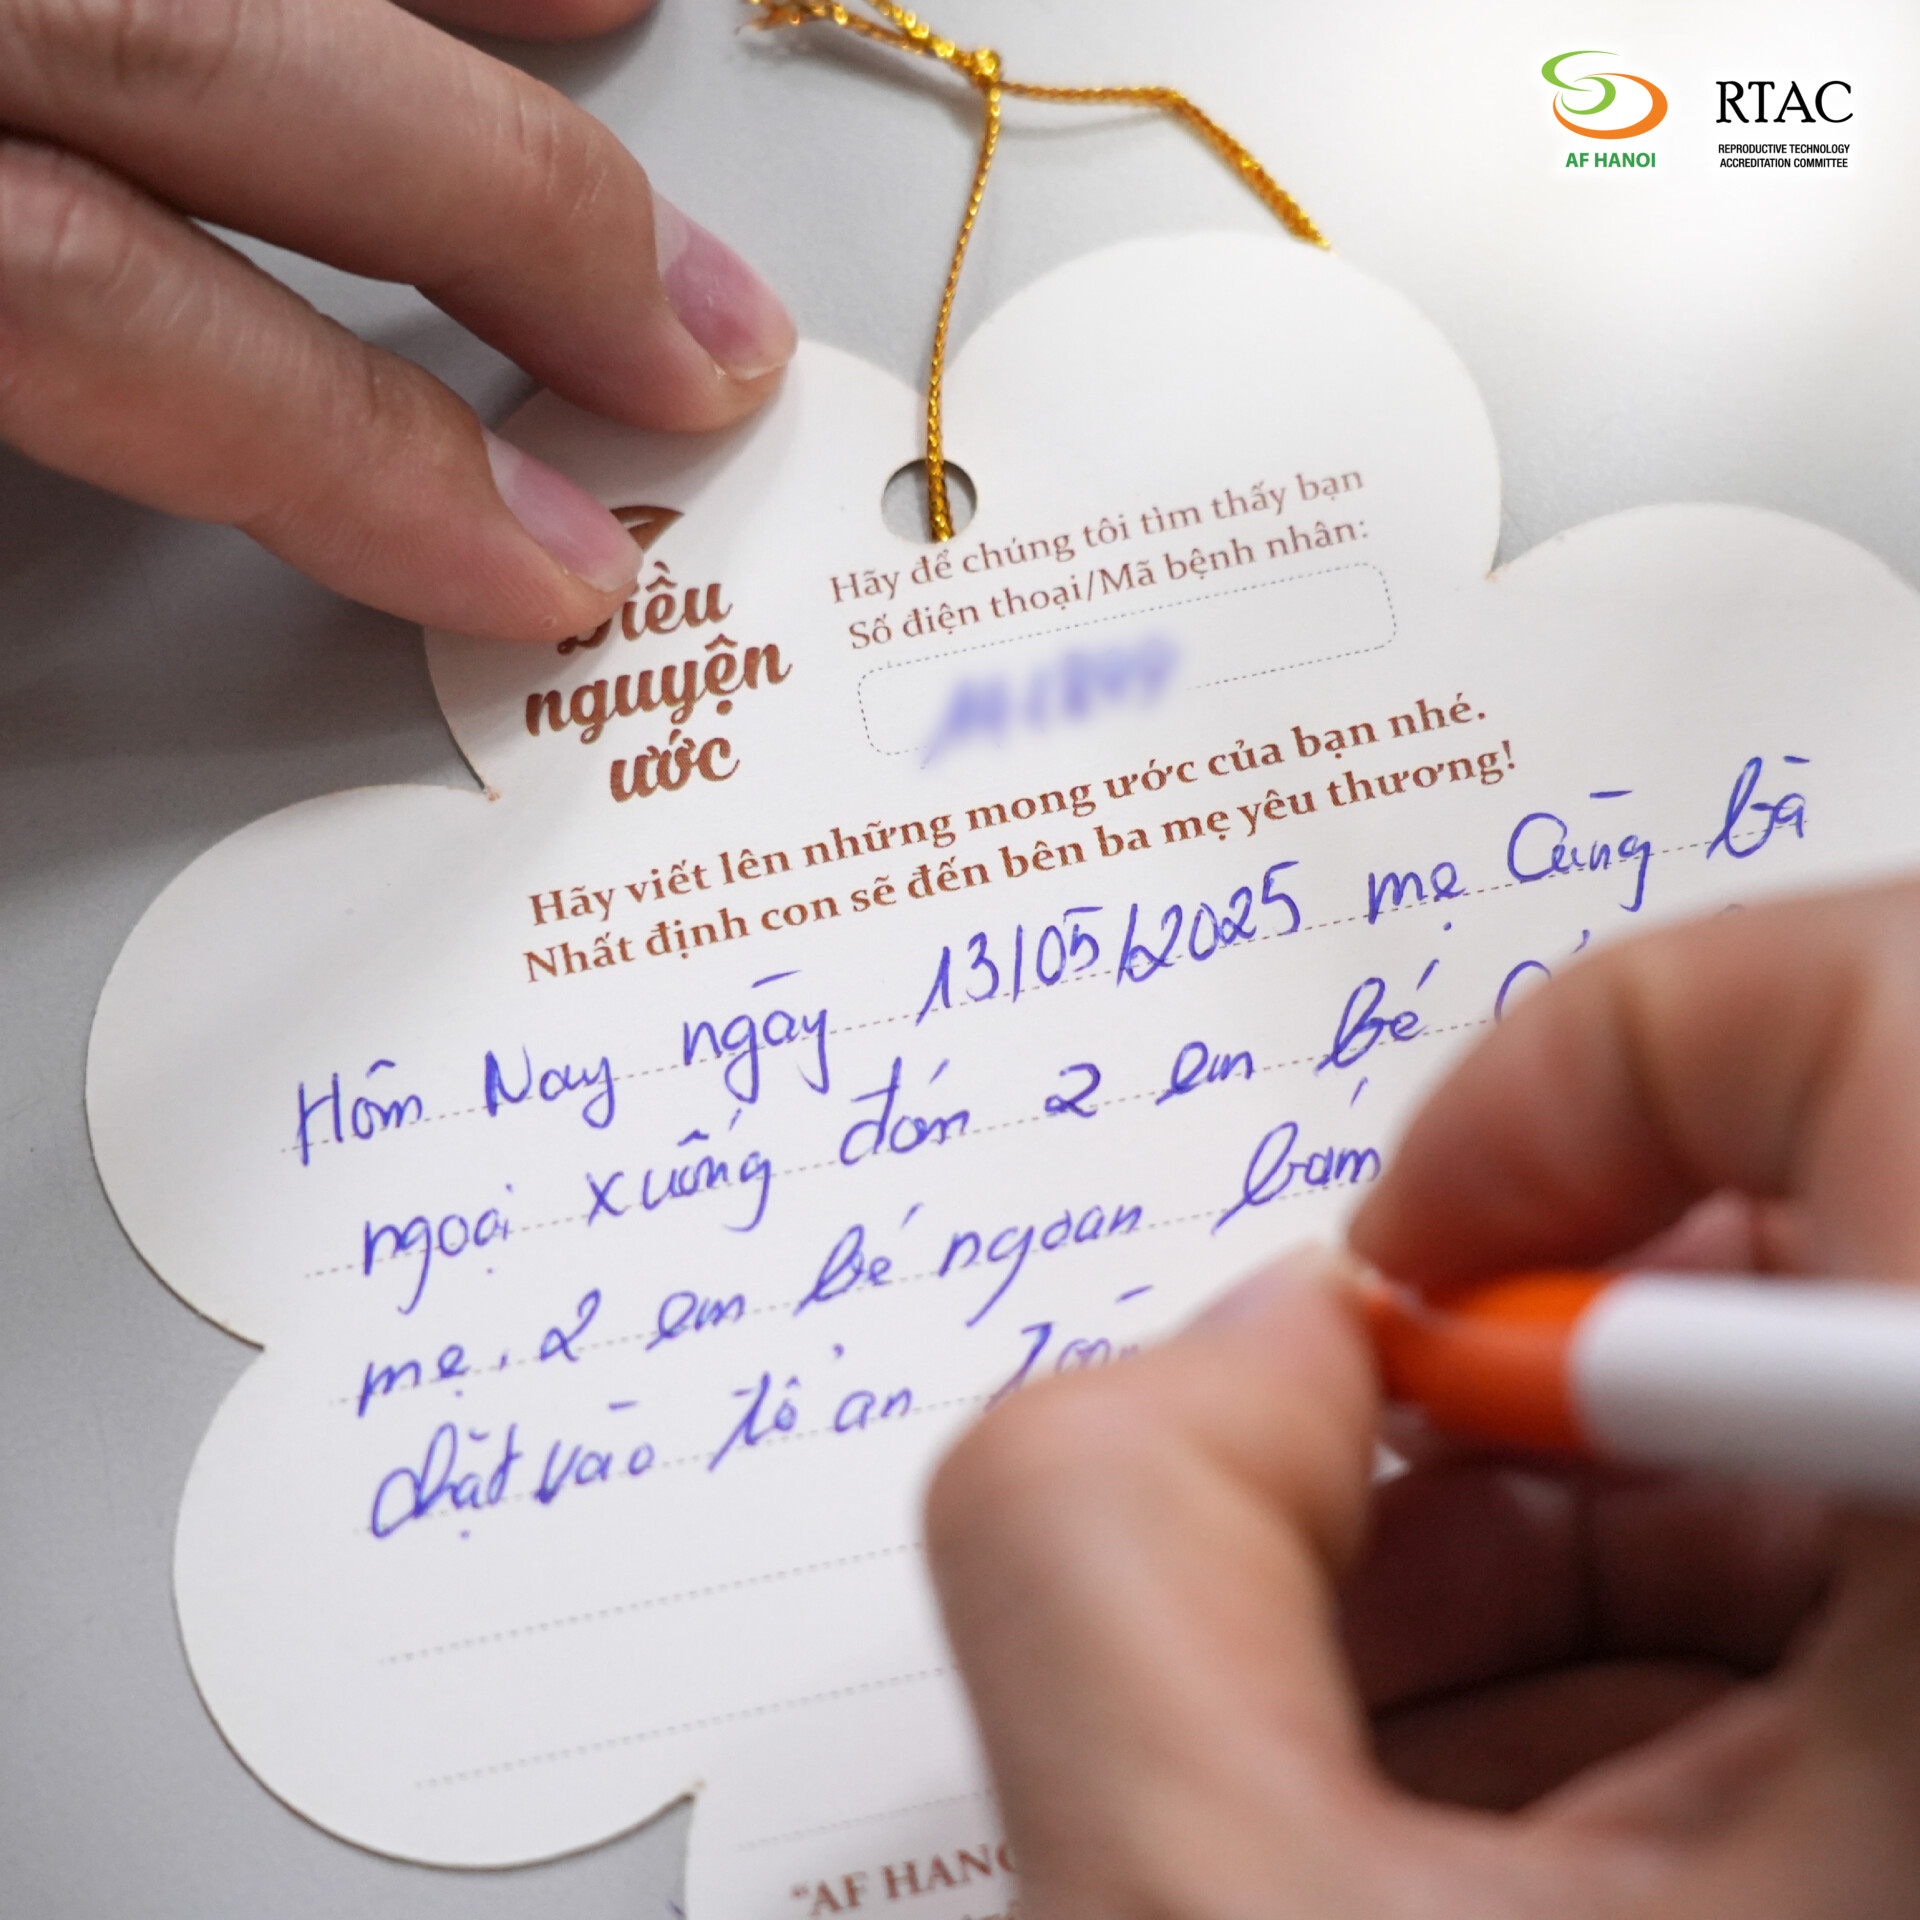 AF HANOI
RTAC
REPRODUCTIVE TECHNOLOGY
ACCREDITATION COMMITTEE
Hãy để chúng tôi tìm thấy bạn
Số điện thoại/Mã bệnh nhân:
nguyện
ước
Hãy viết lên những mong ước của bạn nhé.
Nhất định con sẽ đến bên ba mẹ yêu thương!
Hôm Nay ngày 13/05/2025 mẹ Cùng bà
ngoại xuống đón 2 em bé
mẹ. 2 em bé ngoan bám
chặt vào tổ ấn
"AF HANO